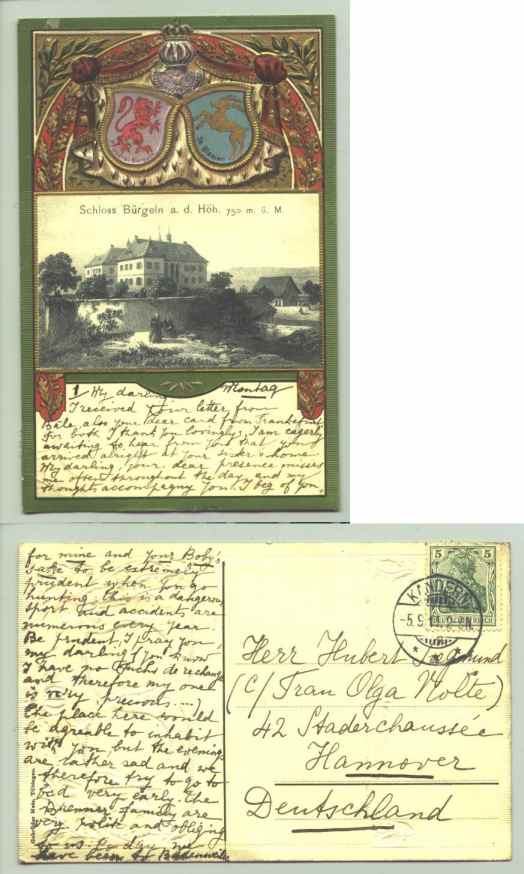 Schloss Bürgeln a. d. Höh. 750 m. ü. M.
1 My darling, Montag
I received your letter from
Bâle, also your dear card from Frankfurt
for both I thank you lovingly, I am eagerly
awaiting to hear from you that you
arrived alright at your sister's home
My darling, your dear presence misses
me often throughout the day and my
thoughts accompagny you. I beg of you
for mine and your Boby's
sake to be extremely
prudent when you go
hunting; this is a dangerous
sport and accidents are
numerous every year
Be prudent, I pray you,
my darling (you know
I have no Fuchs de rechange
and therefore my one
is very precious...)
The place here would
be agreable to inhabit
with you but the evenings
are rather sad and we
therefore try to go to
bed very early. The
family are
very polite and obliging
to us. to day we
have been to Badenweiler
5
DEUTSCHES REICH
KANDERN
Herr Hubert
(c/ Frau Olga Nolte)
42 Staderchaussée
Hannover
Deutschland